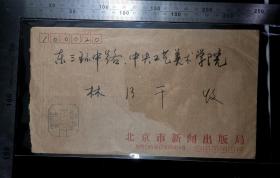 100020
东三环中路.中央工艺美术学院
林乃干 收
北京市新闻出版局